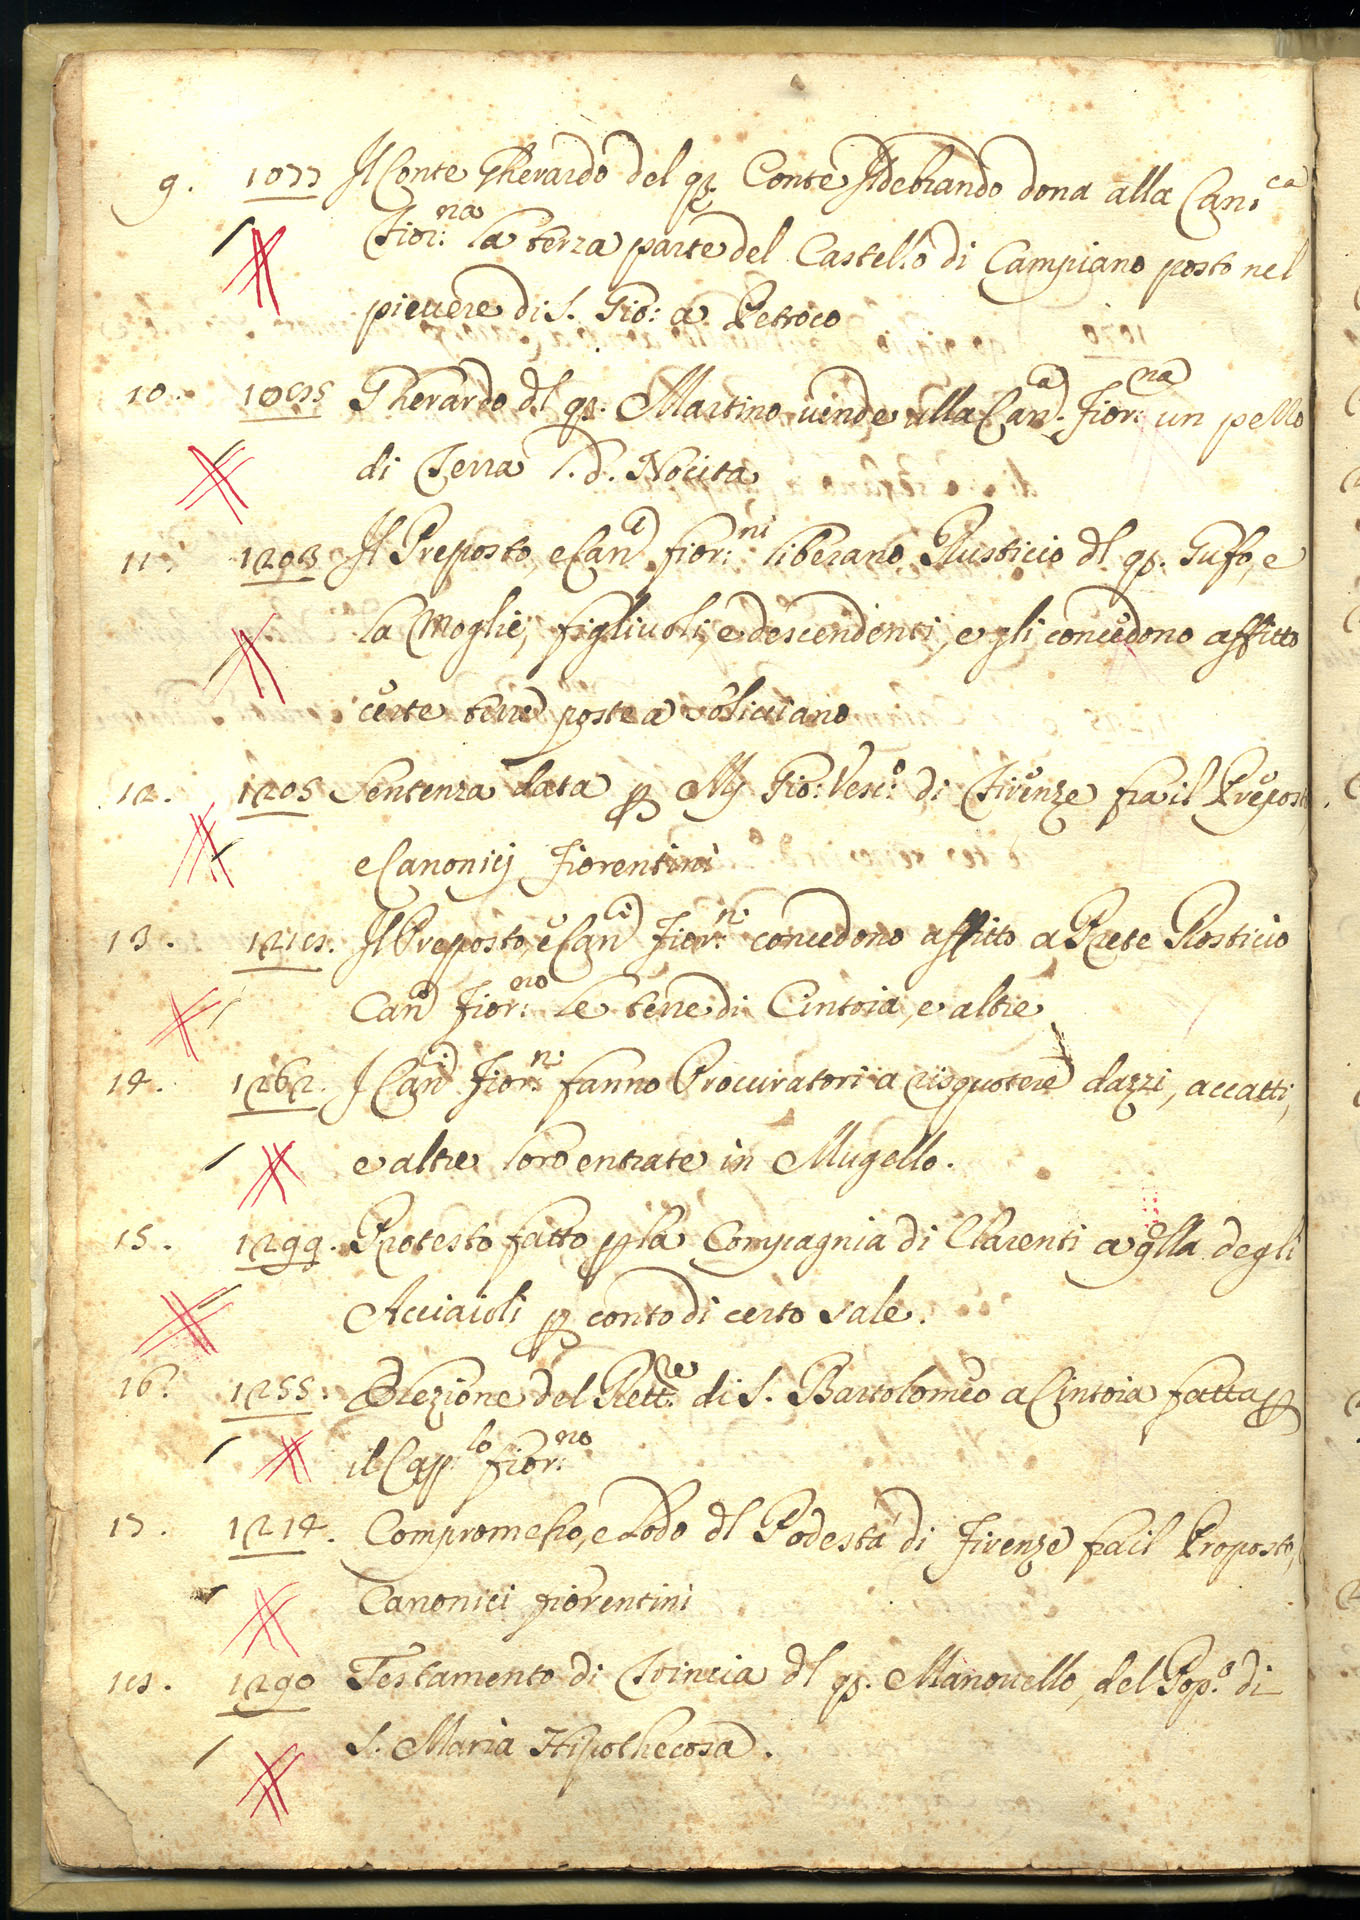 9. 1077 Il Conte Gherardo del qp. Conte Ildebrando dona alla Can.ca
Fior:na la terza parte del Castello di Campiano posto nel
pievere di S. Gio: a Petroio
10. Gherardo dl qp. Martino vende alla Can.a Fior:na un pezzo
di Terra l. d. Nocita
11. 1203 Il Preposto, e Can.i fior:ni liberano Rusticio dl qp. Gufo, e
la Moglie, figliuoli, e descendenti, e gli concedono affitto
certe terre poste a Soliciano
12. 1205 Sentenza data p Mg Gio: Vesc:o di Firenze fra il Prepost
e Canonicj fiorentini
13. 1218. Il Preposto, e Can.i Fior:ni concedono affitto a Prete Rosticio
Can.o Fior:no le terre di Cintoia, e altre
14. 1262. I Can.i Fior:ni fanno Procuratori a risquotere dazzi, accatti,
e altre loro entrate in Mugello.
15. 1299. Protesto fatto p la Compagnia di Clarenti a qlla degli
Acciaioli p conto di certo sale.
16. 1255. Elezione del Rett:re di S. Bartolomeo a Cintoia fatta p
il Cap:lo fior:no
17. 1214. Compromesso, e Lodo dl Podestà di Firenze fra il Proposto,
Canonici fiorentini
18. 1290 Testamento di dl qp. Manovello, del Pop.o di
S. Maria Hipothecosa.